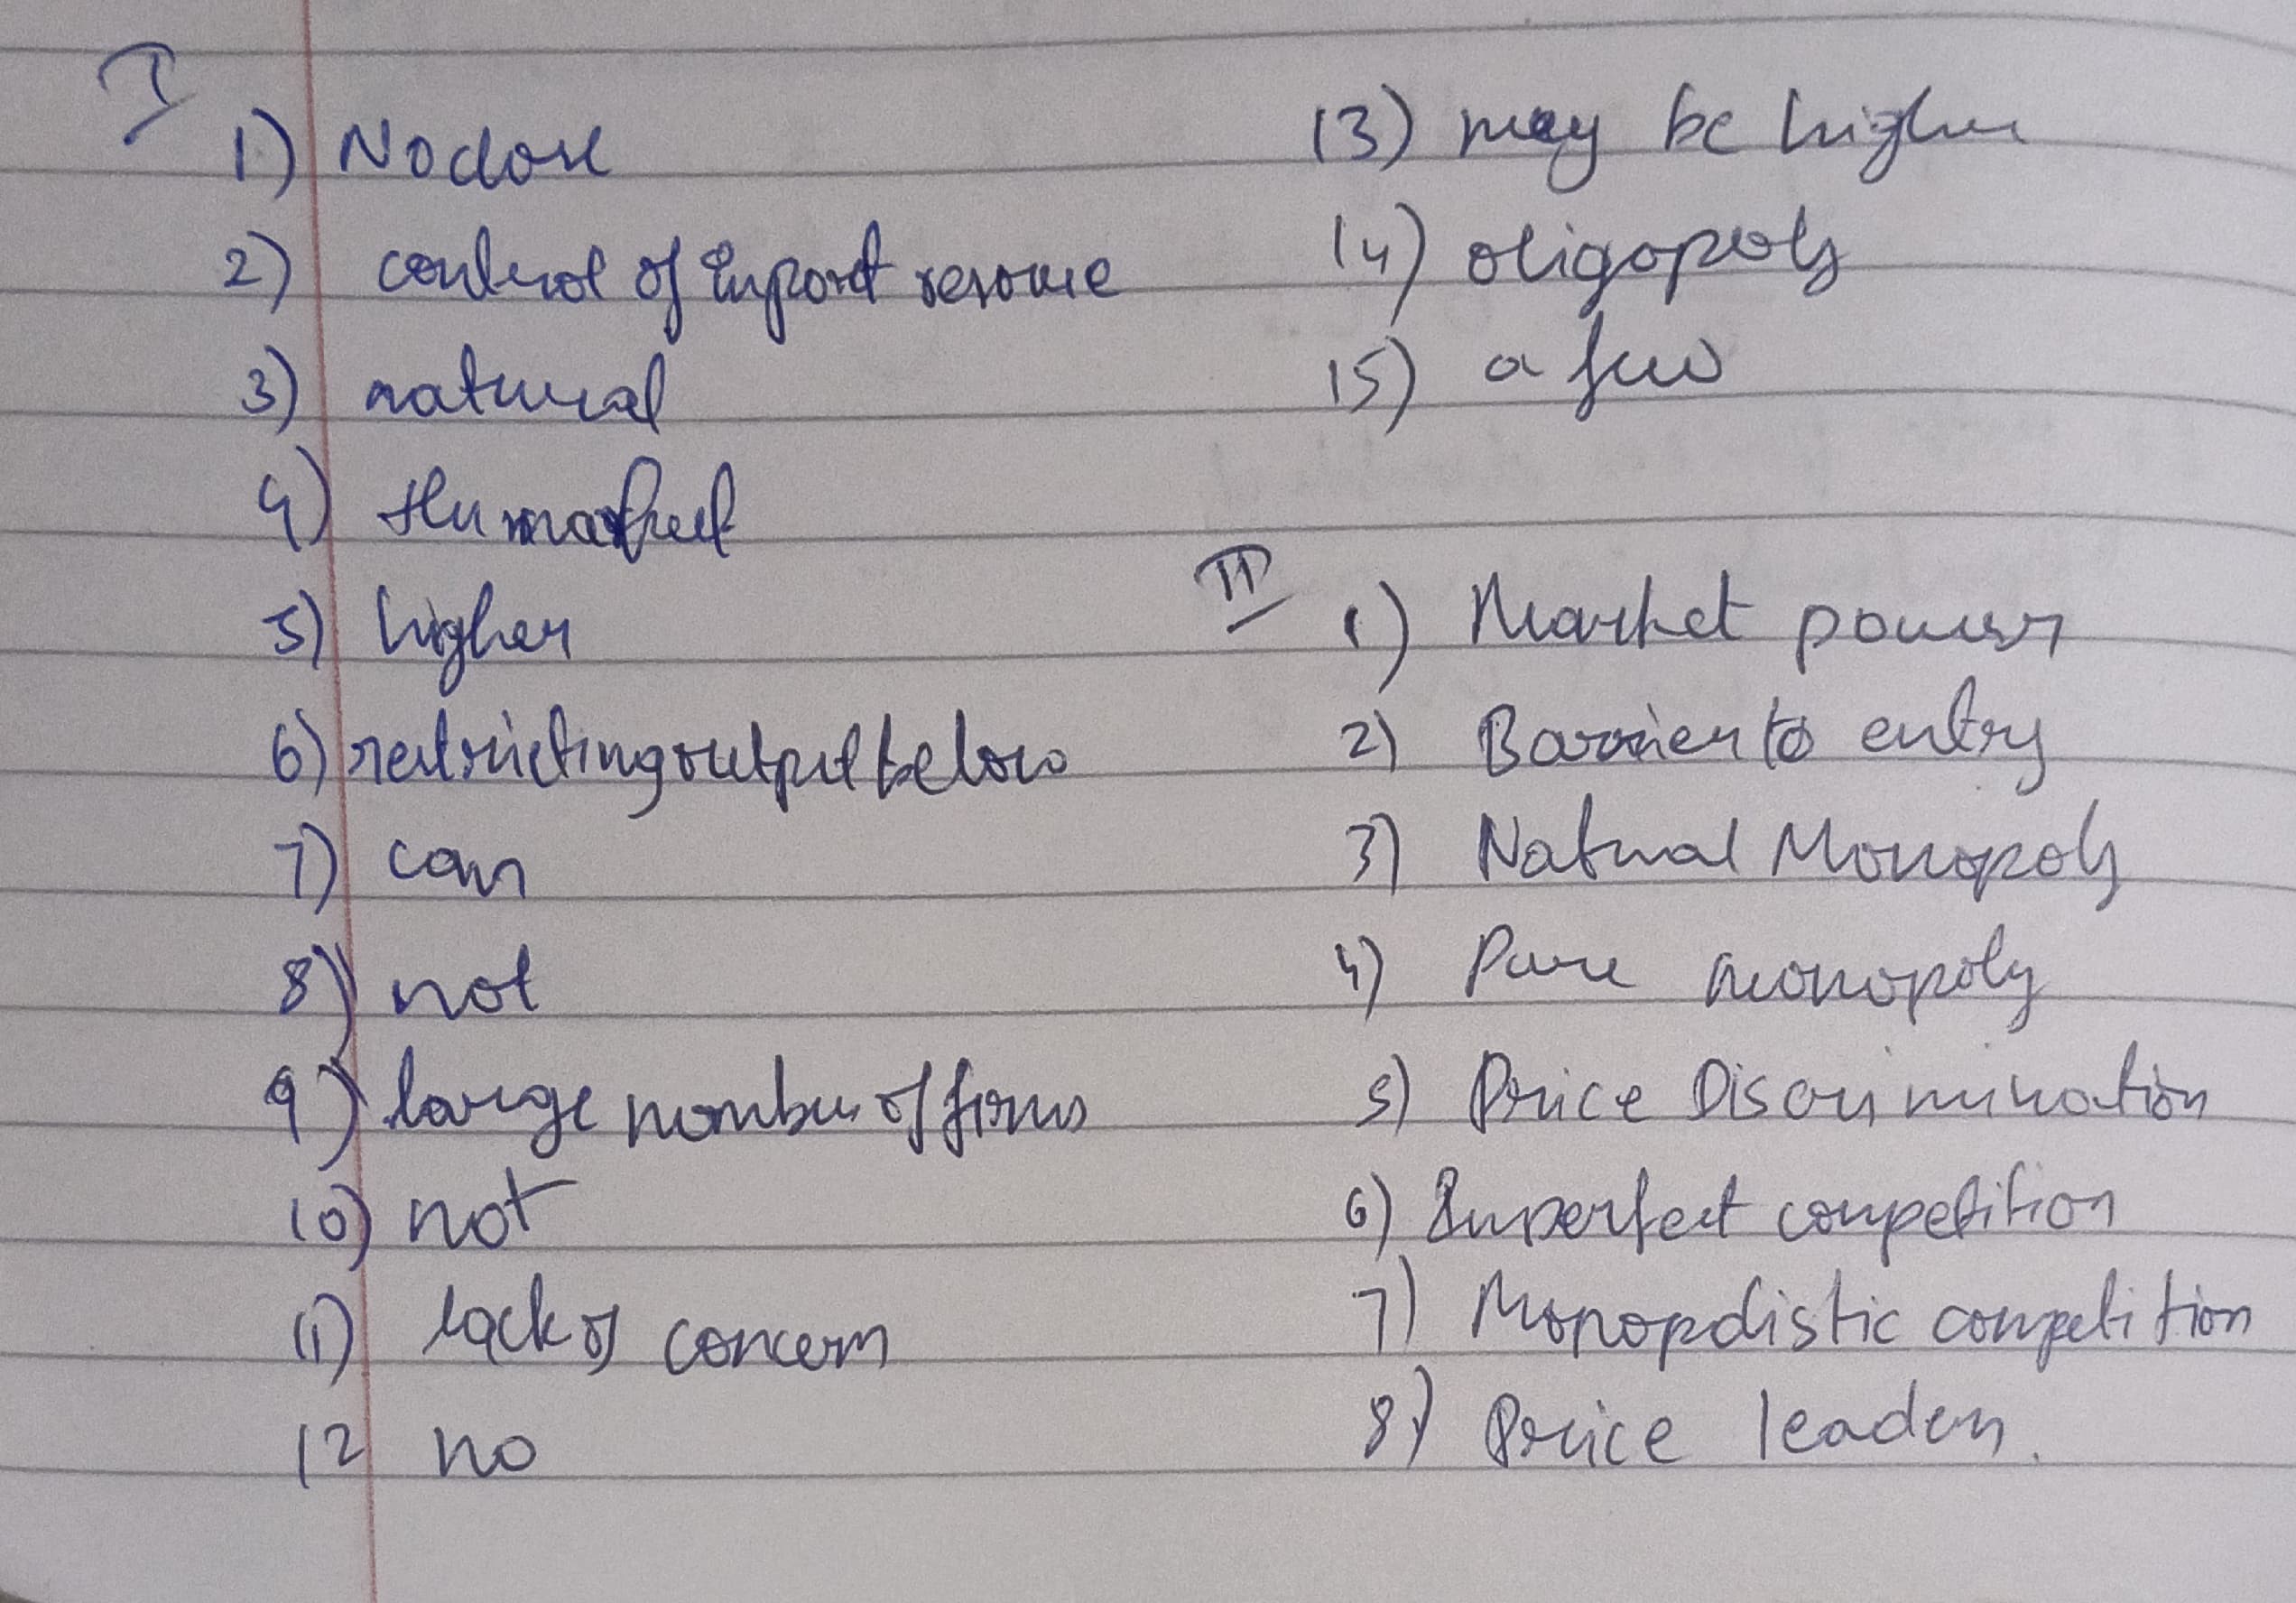 I
1) No close
2) control of import resource
3) natural
4) the market
5) higher
6) restricting output below
7) can
8) not
9) large number of firms
10) not
11) lack of concern
12 no
13) may be higher
14) oligopoly
15) a few
II
1) Market power
2) Barrier to entry
3) Natural Monopoly
4) Pure monopoly
5) Price Discrimination
6) Imperfect competition
7) Monopolistic competition
8) Price leader.